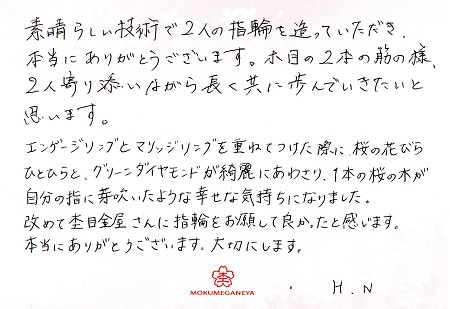 素晴らしい技術で2人の指輪を造っていただき、
本当にありがとうございます。木目の2本の筋の様、
2人寄り添いながら長く共に歩んでいきたいと
思います。
エンゲージリングとマリッジリングを重ねてつけた際に、桜の花びら
ひとひらと、グリーンダイヤモンドが綺麗にあわさり、1本の桜の木が
自分の指に芽吹いたような幸せな気持ちになりました。
改めて杢目金屋さんに指輪をお願して良かったと感じます。
本当にありがとうございます。大切にします。
杢
MOKUMEGANEYA
H.N